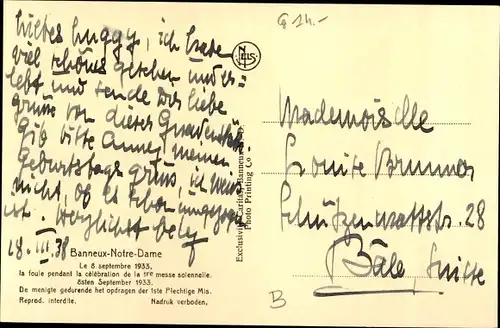 Liebes Luggy, ich habe
viel schönes gesehen und er=
lebt und sende Dir liebe
grüsse von diesem Gnadenort.
Gib bitte meinen
Geburtstags gruss, ich weiss
nicht, ob es schon
ist. Herzlichst
18. III. 38
Banneux-Notre-Dame
Le 8 septembre 1933,
la foule pendant la célébration de la 1re messe solennelle.
8sten September 1933.
De menigte gedurende het opdragen der 1ste Plechtige Mis.
Reprod. interdite. Nadruk verboden.
NELS
Exclusivité Caritas, Banneux N.-D.
Photo Printing Co
G 14.-
Mademoiselle
Louise Brunner
Schützenmattstr. 28
Bâle, Suisse
B